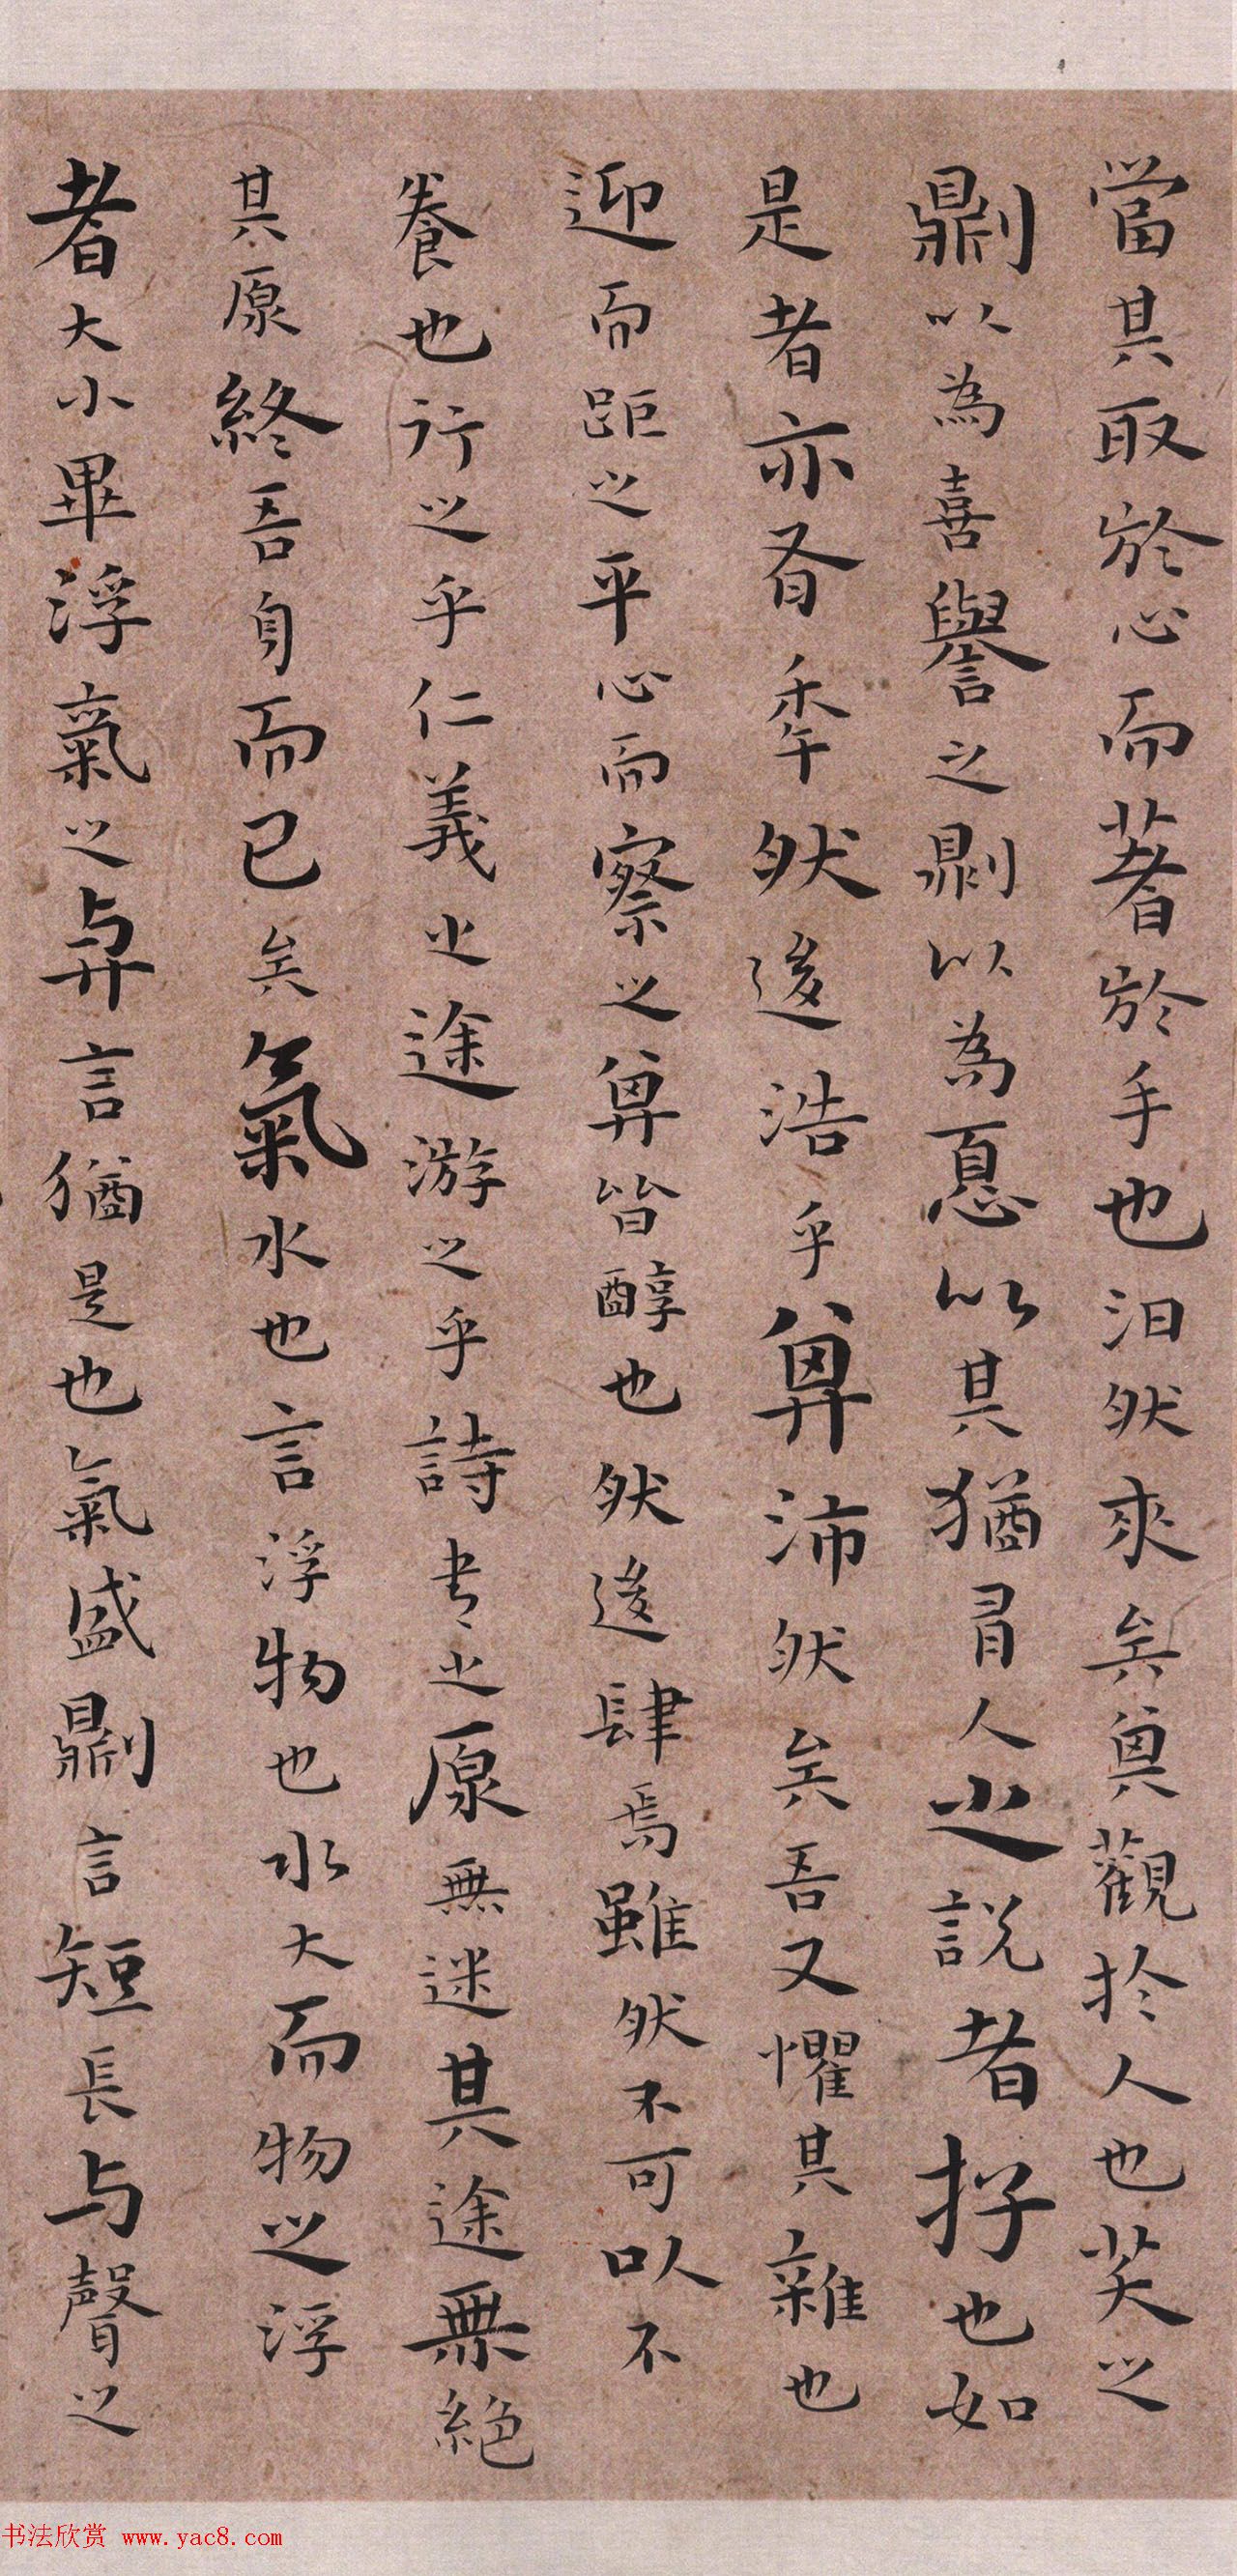 當其取於心而著於手也汩然來矣其觀於人也笑之
則以為喜譽之則以為憂以其猶有人之説者存也如
是者亦有年然後浩乎其沛然矣吾又懼其雜也
迎而距之平心而察之其皆醇也然後肆焉雖然不可以不
養也行之乎仁義之途游之乎詩書之原無迷其途無絕
其原終吾身而已矣氣水也言浮物也水大而物之浮
者大小畢浮氣之與言猶是也氣盛則言短長與聲之
书法欣赏 www.yac8.com